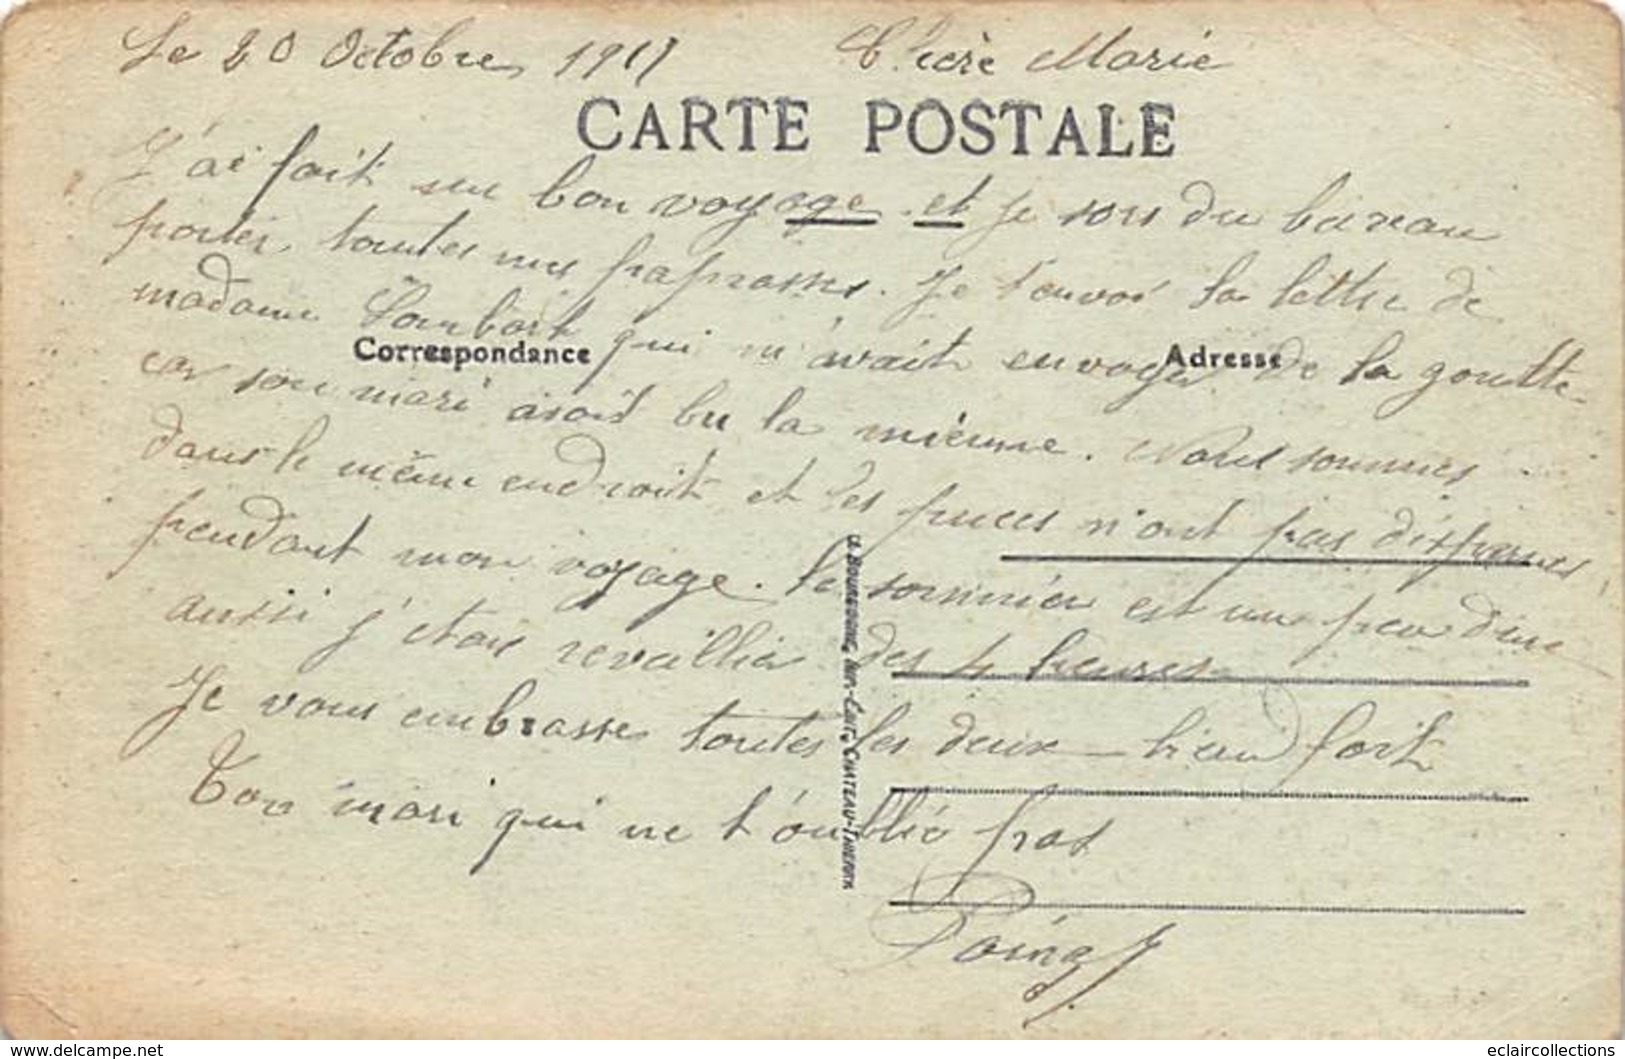 Le 20 Octobre 1917 Chère Marie
CARTE POSTALE
J'ai fait un bon voyage et je sors du bureau
porter toutes mes paprasses. Je t'envoi la lettre de
madame Lambart qui m'avait envoyer de la goutte
Correspondance
Adresse
car son mari avait bu la mienne. Nous sommes
dans le même endroit et les puces n'ont pas disparues
pendant mon voyage. le sommier est un peu dur
aussi j'étais reveillier des 4 heures
Je vous embrasse toutes les deux bien fort
Ton mari qui ne t'oublie pas
LE BOURGOGNE, IMP.-EDIT., CHATEAU-THIERRY
www.delcampe.net
eclaircollections